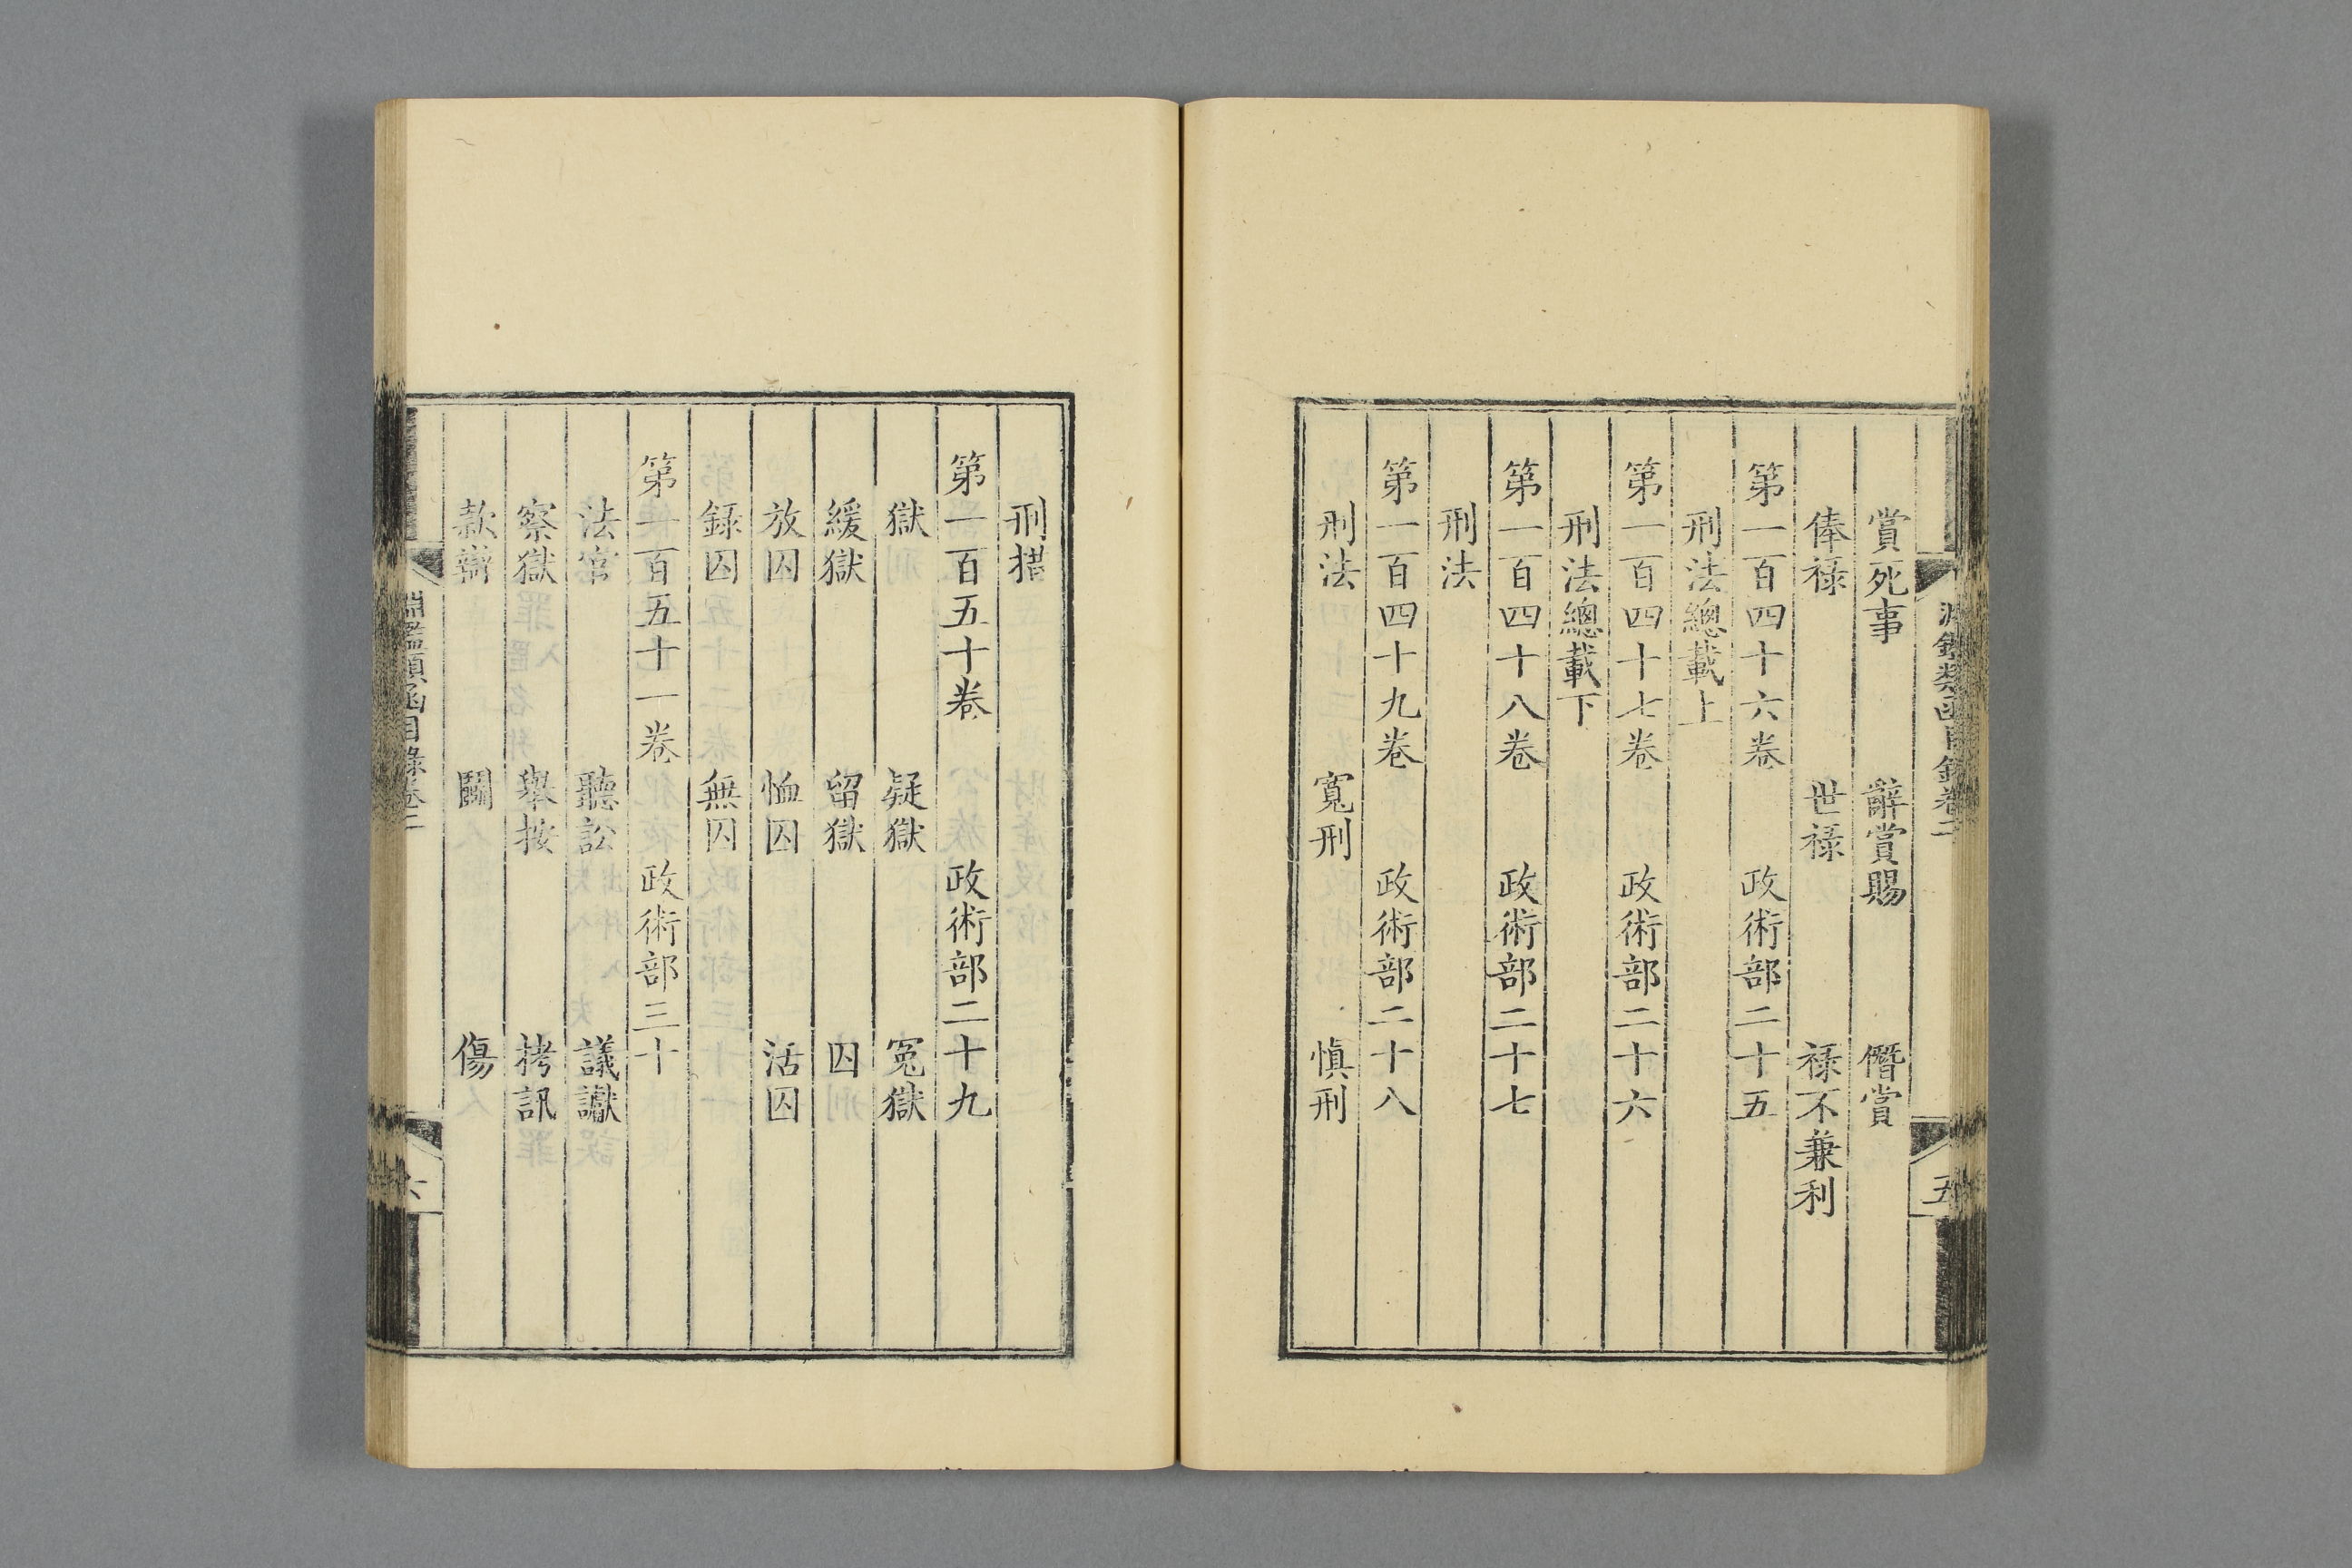 賞死事 辭賞賜 僭賞
俸祿 世祿 祿不兼利
第一百四十六卷 政術部二十五
刑法總載上
第一百四十七卷 政術部二十六
刑法總載下
第一百四十八卷 政術部二十七
刑法
第一百四十九卷 政術部二十八
刑法 寬刑 愼刑
刑措
第一百五十卷 政術部二十九
獄 疑獄 冤獄
緩獄 留獄 囚
放囚 恤囚 活囚
錄囚 無囚
第一百五十一卷 政術部三十
法官 聽訟 議讞
察獄 舉按 拷訊
款辯 鬭 傷
淵鑑類函目錄卷二
五
六